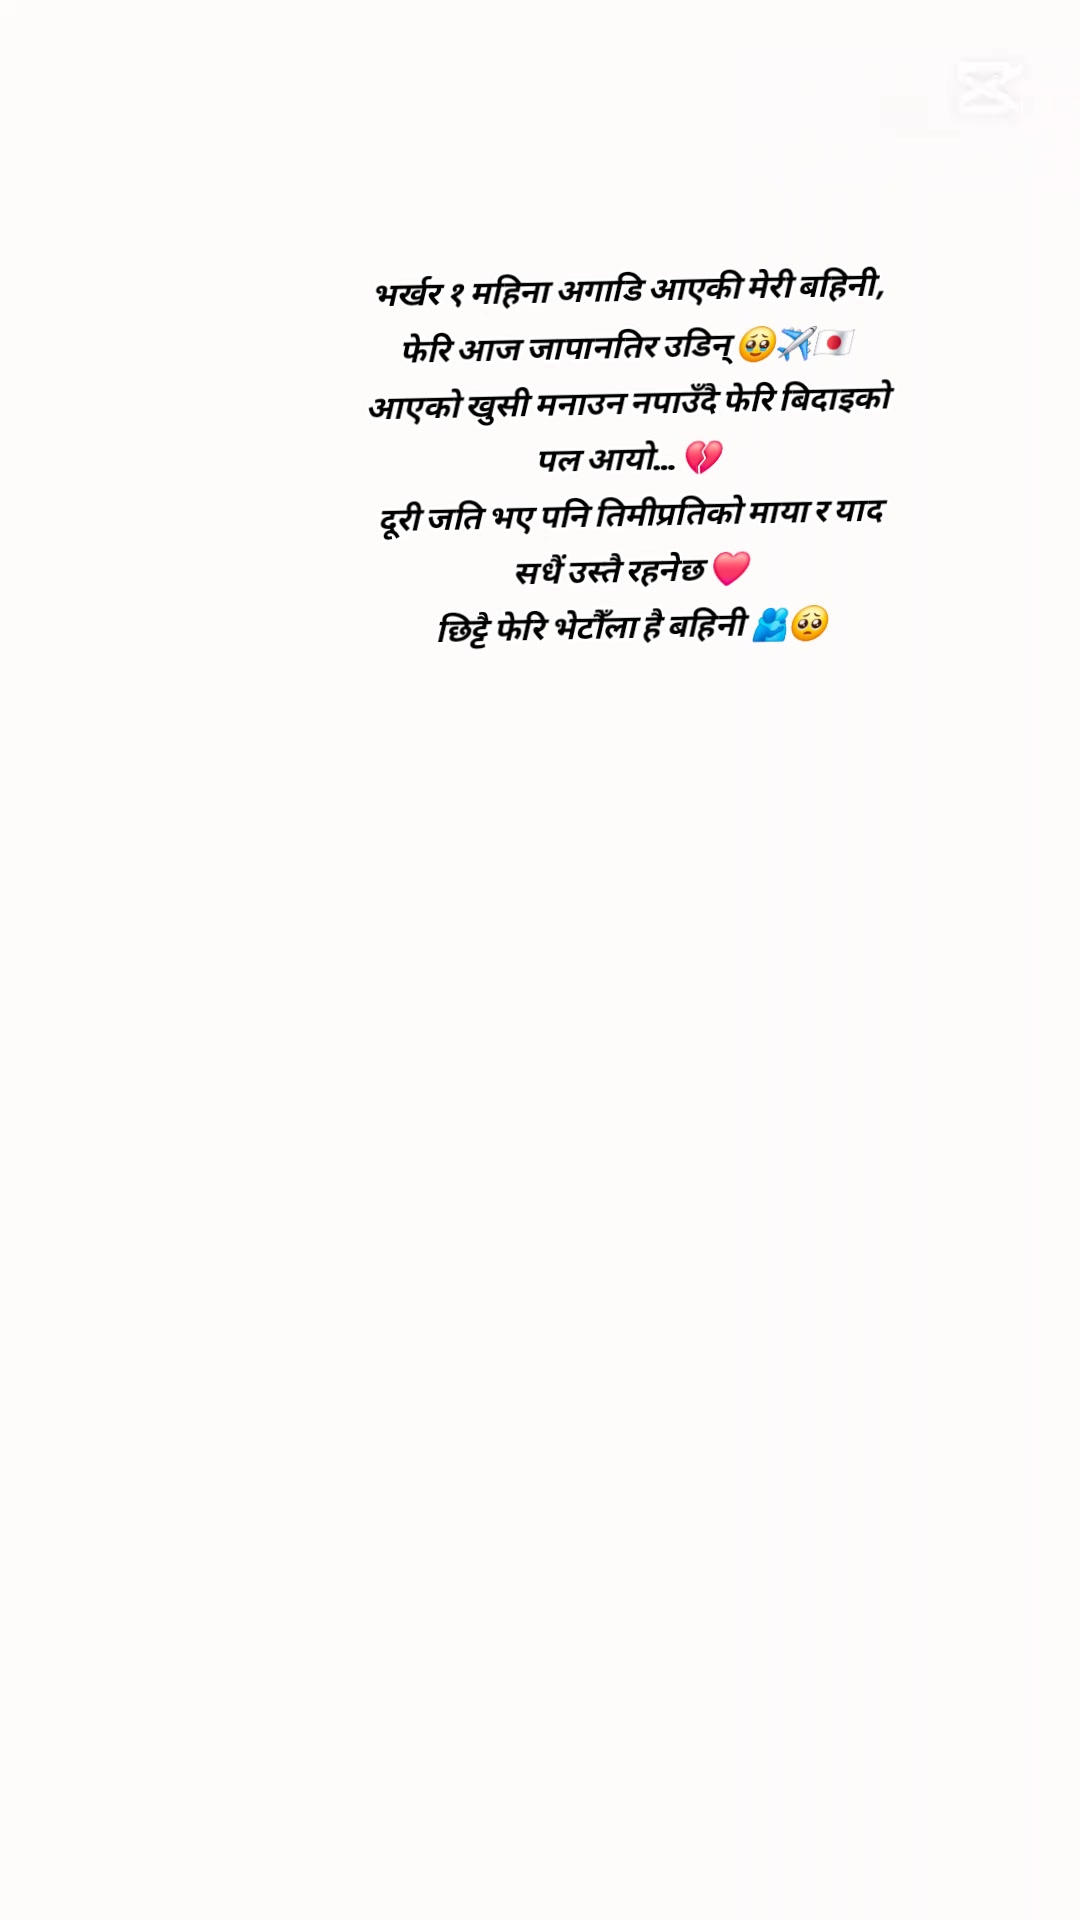 भर्खर १ महिना अगाडि आएकी मेरी बहिनी,
फेरि आज जापानतिर उडिन् 🥹✈️🇯🇵
आएको खुसी मनाउन नपाउँदै फेरि बिदाइको
पल आयो... 💔
दूरी जति भए पनि तिमीप्रतिको माया र याद
सधैं उस्तै रहनेछ ❤️
छिट्टै फेरि भेटौँला है बहिनी 🫂🥺